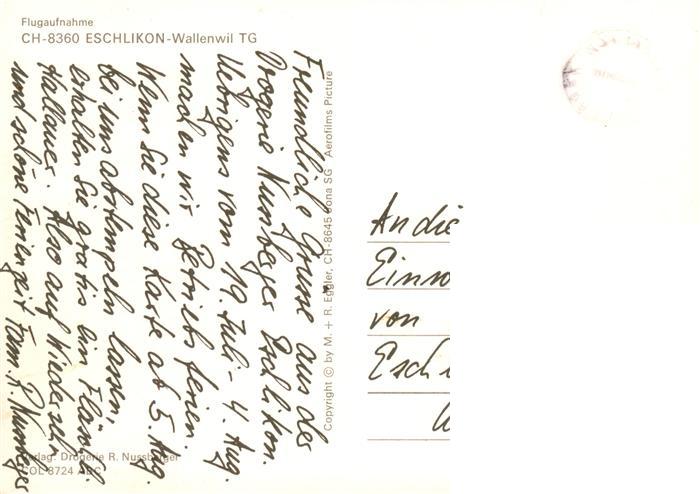 Flugaufnahme
CH-8360 ESCHLIKON-Wallenwil TG
Freundliche Grüsse aus der
Drogerie Nussberger Eschlikon.
Uebrigens vom 19. Juli - 4. Aug.
machen wir Betriebsferien.
Wenn Sie diese Karte ab 5. Aug.
bei uns abstempeln lassen,
erhalten Sie gratis ein
Hallauer. Also auf Wiederseh
und schöne Ferienzeit Fam. R. Nussberger
Verlag: Drogerie R. Nussberger
COL 8724 ABC
Copyright © by M. + R. Eggler, CH-8645 Jona SG Aerofilms Picture
An die
Einwo
von
Eschl
W